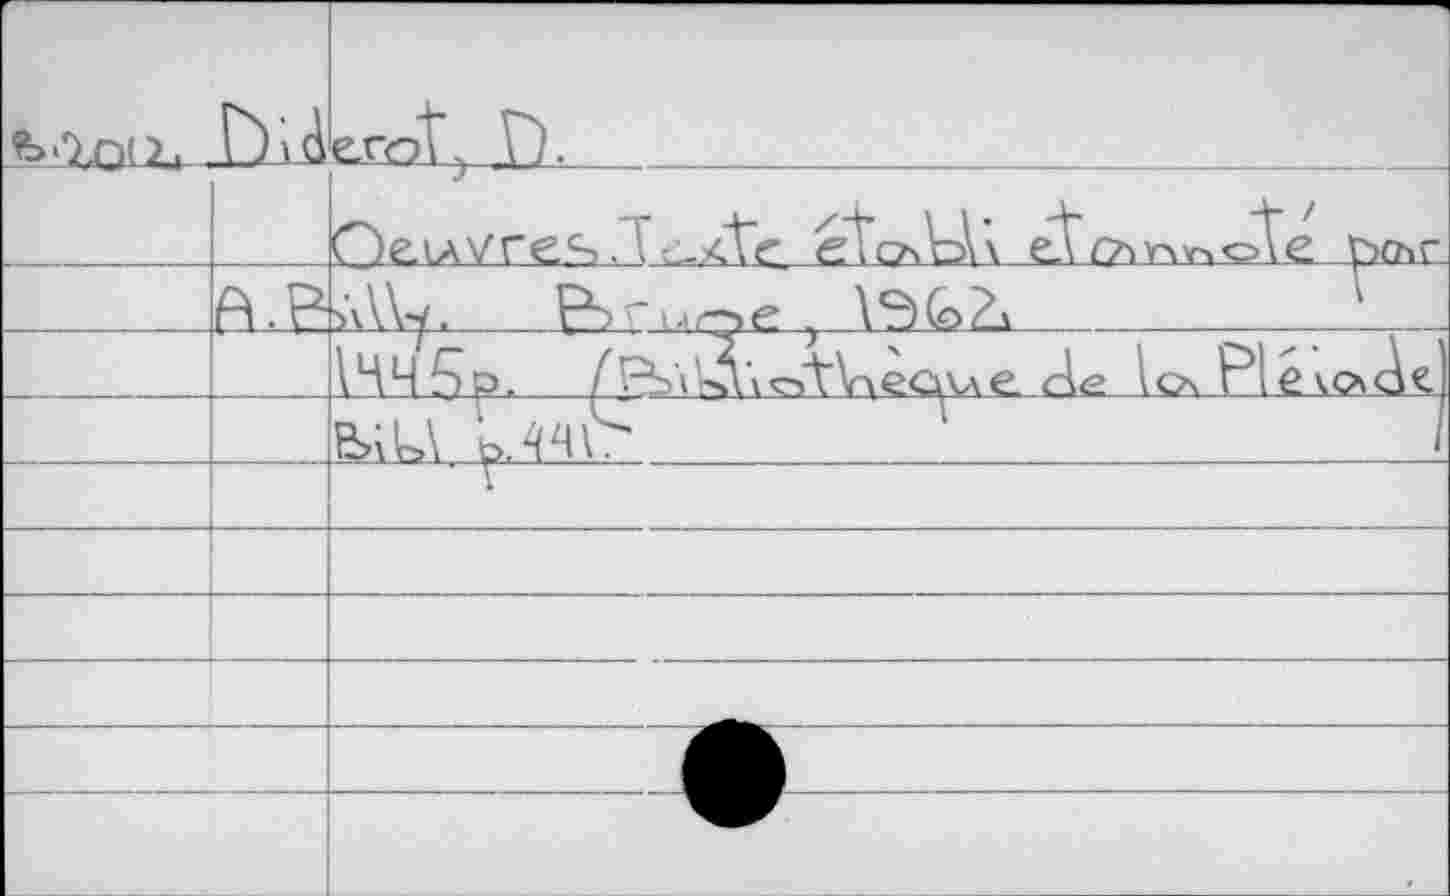 Diderot, D.
Oeuvres. Texte établi et annoté par
A. Billy. Bruges, 1962
1445p. (Bibliothèque de la Pléiade)
Bibl. p. 441.